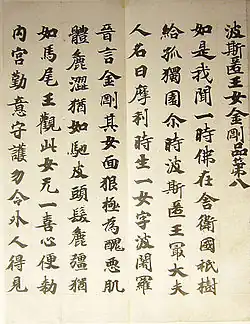 波斯匿王女金剛品第八
如是我聞一時佛在舍衛國祇樹
給孤獨園尒時波斯匿王冣大夫
人名曰摩利時生一女字波闍羅
晉言金剛其女面狠極為醜惡肌
體麁澀猶如馳皮頭髮麁彊猶
如馬尾王觀此女无一喜心便勑
内宮勤意守護勿令外人得見